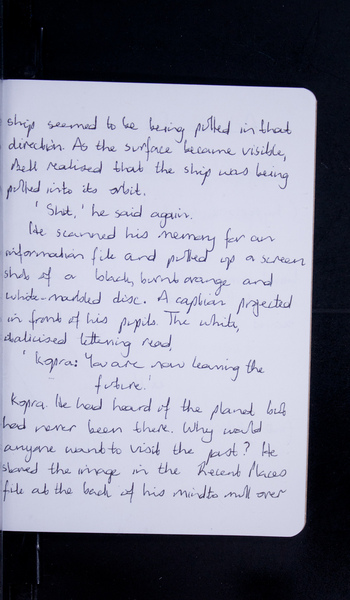 ship seemed to be being pulled in that
direction. As the surface became visible,
Bell realised that the ship was being
pulled into its orbit.
'Shit,' he said again.
He scanned his memory for an
information file and pulled up a screen
shot of a black, burnt orange and
white-marbled disc. A caption projected
in front of his pupils. The white,
italicised lettering read,
'Kopra: You are now leaving the
future.'
Kopra. He had heard of the planet but
had never been there. Why would
anyone want to visit the past? He
stored the image in the Recent Places
file at the back of his mind to mull over